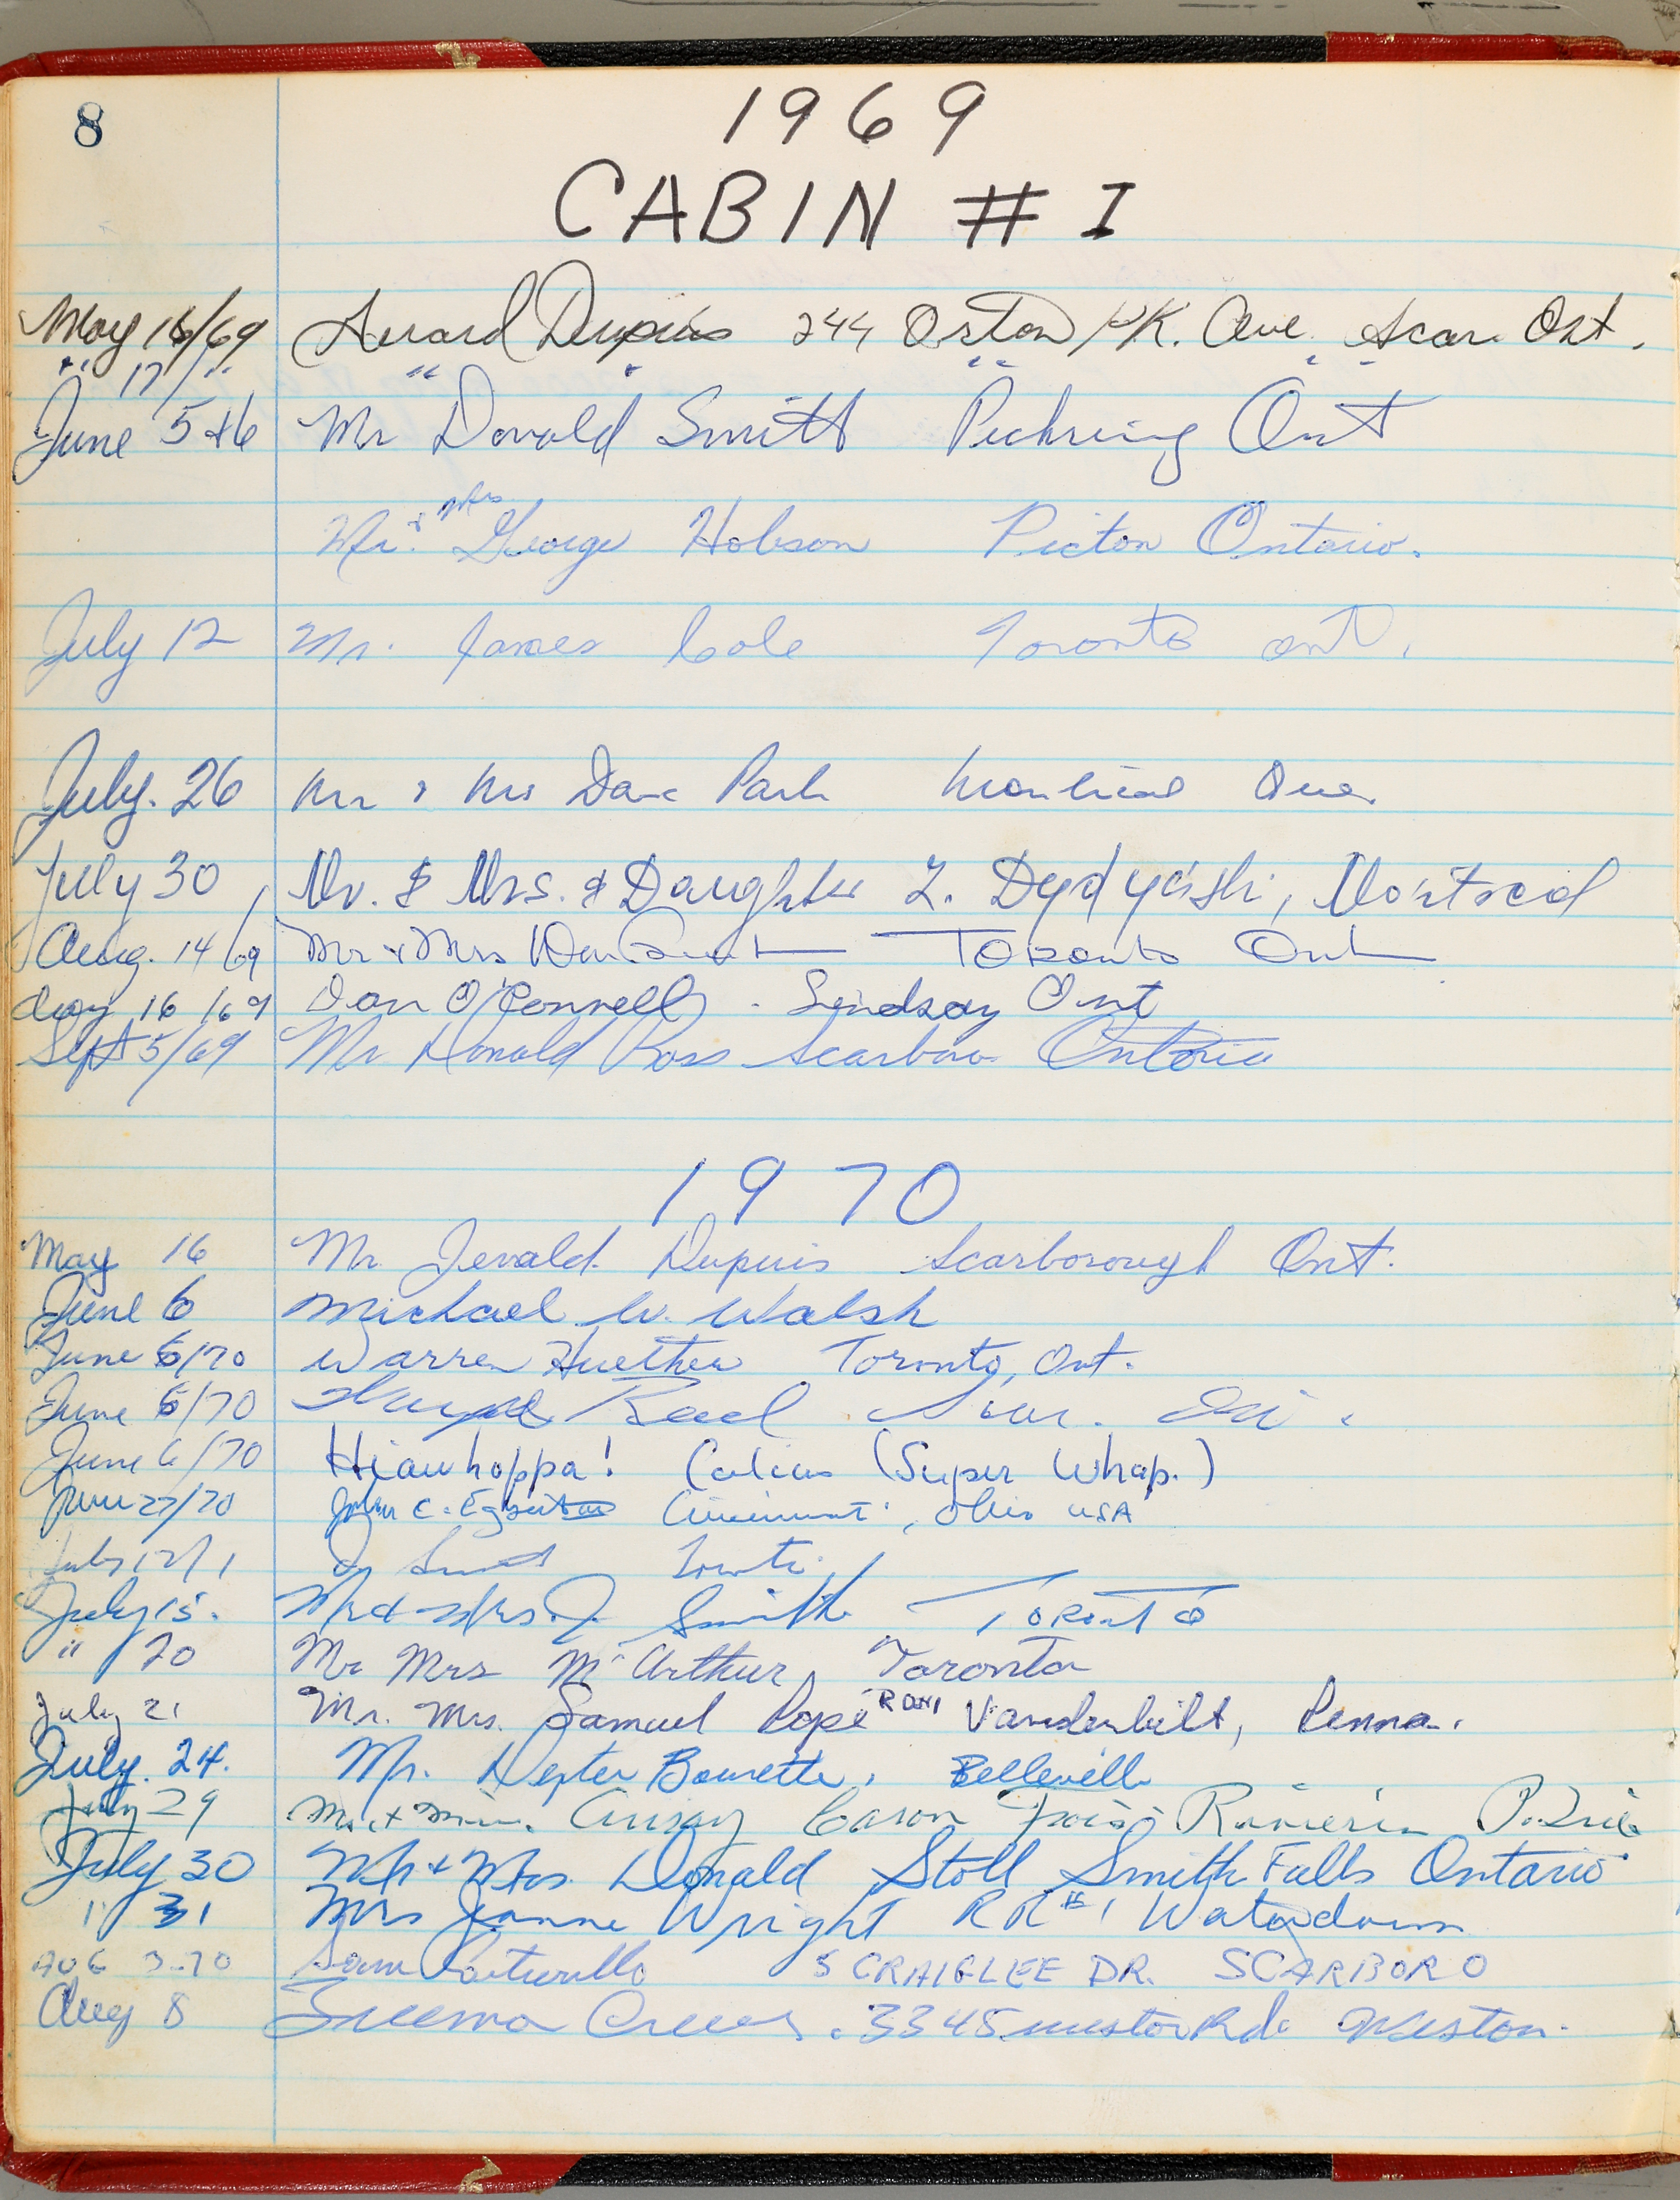 8
1969
CABIN # I
May 16/69 Gerard Dupuis 244 Oston PK. Ave. Scar. Ont.
" 17/" " " " " "
June 5 & 6 Mr Donald Smith Pickering Ont
Mr. & Mrs George Hobson Picton Ontario.
July 12 Mr. James Cole Toronto Ont.
July. 26 Mr & Mrs Dave Park Montreal Que.
July 30 Mr. & Mrs. & Daughter Z. Montreal
Aug. 14/69 Mr & Mrs Toronto Ont
Aug 16/69 Dan O'Connell. Lindsay Ont
Sept 5/69 Mr Donald Ross Scarboro Ontario
1970
May 16 Mr Jerald Dupuis Scarborough Ont.
June 6 Michael W. Walsh
June 6/70 Warren Huether Toronto, Ont.
June 6/70 Scar. Ont.
June 6/70 Hiawhoppa! (Super Whap.)
June 27/70 John C. Cincinnati, Ohio USA
July 12/ J. Smith
July 15. Mr & Mrs. J. Smith Toronto
" 20 Mr Mrs McArthur, Toronto
July 21 Mr. Mrs. Samuel Pope RD#1 Vanderbilt, Penna.
July. 24. Mr. Dexter Bourette, Belleville
July 29 Mr. & Mme. Caron Trois Rivières P. Qué
July 30 Mr & Mrs. Donald Stoll Smith Falls Ontario
" 31 Mrs Jeanne Wright RR#1 Waterdown
AUG 3-70 Sam 5 CRAIGLEE DR. SCARBORO
Aug 8 3345 Weston Rd. Weston.